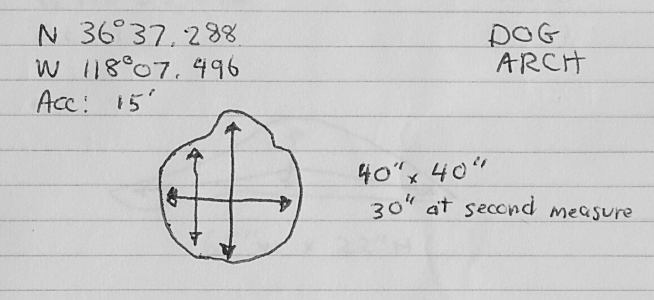 N 36°37.288
W 118°07.496
Acc: 15'
DOG
ARCH
40" x 40"
30" at second measure